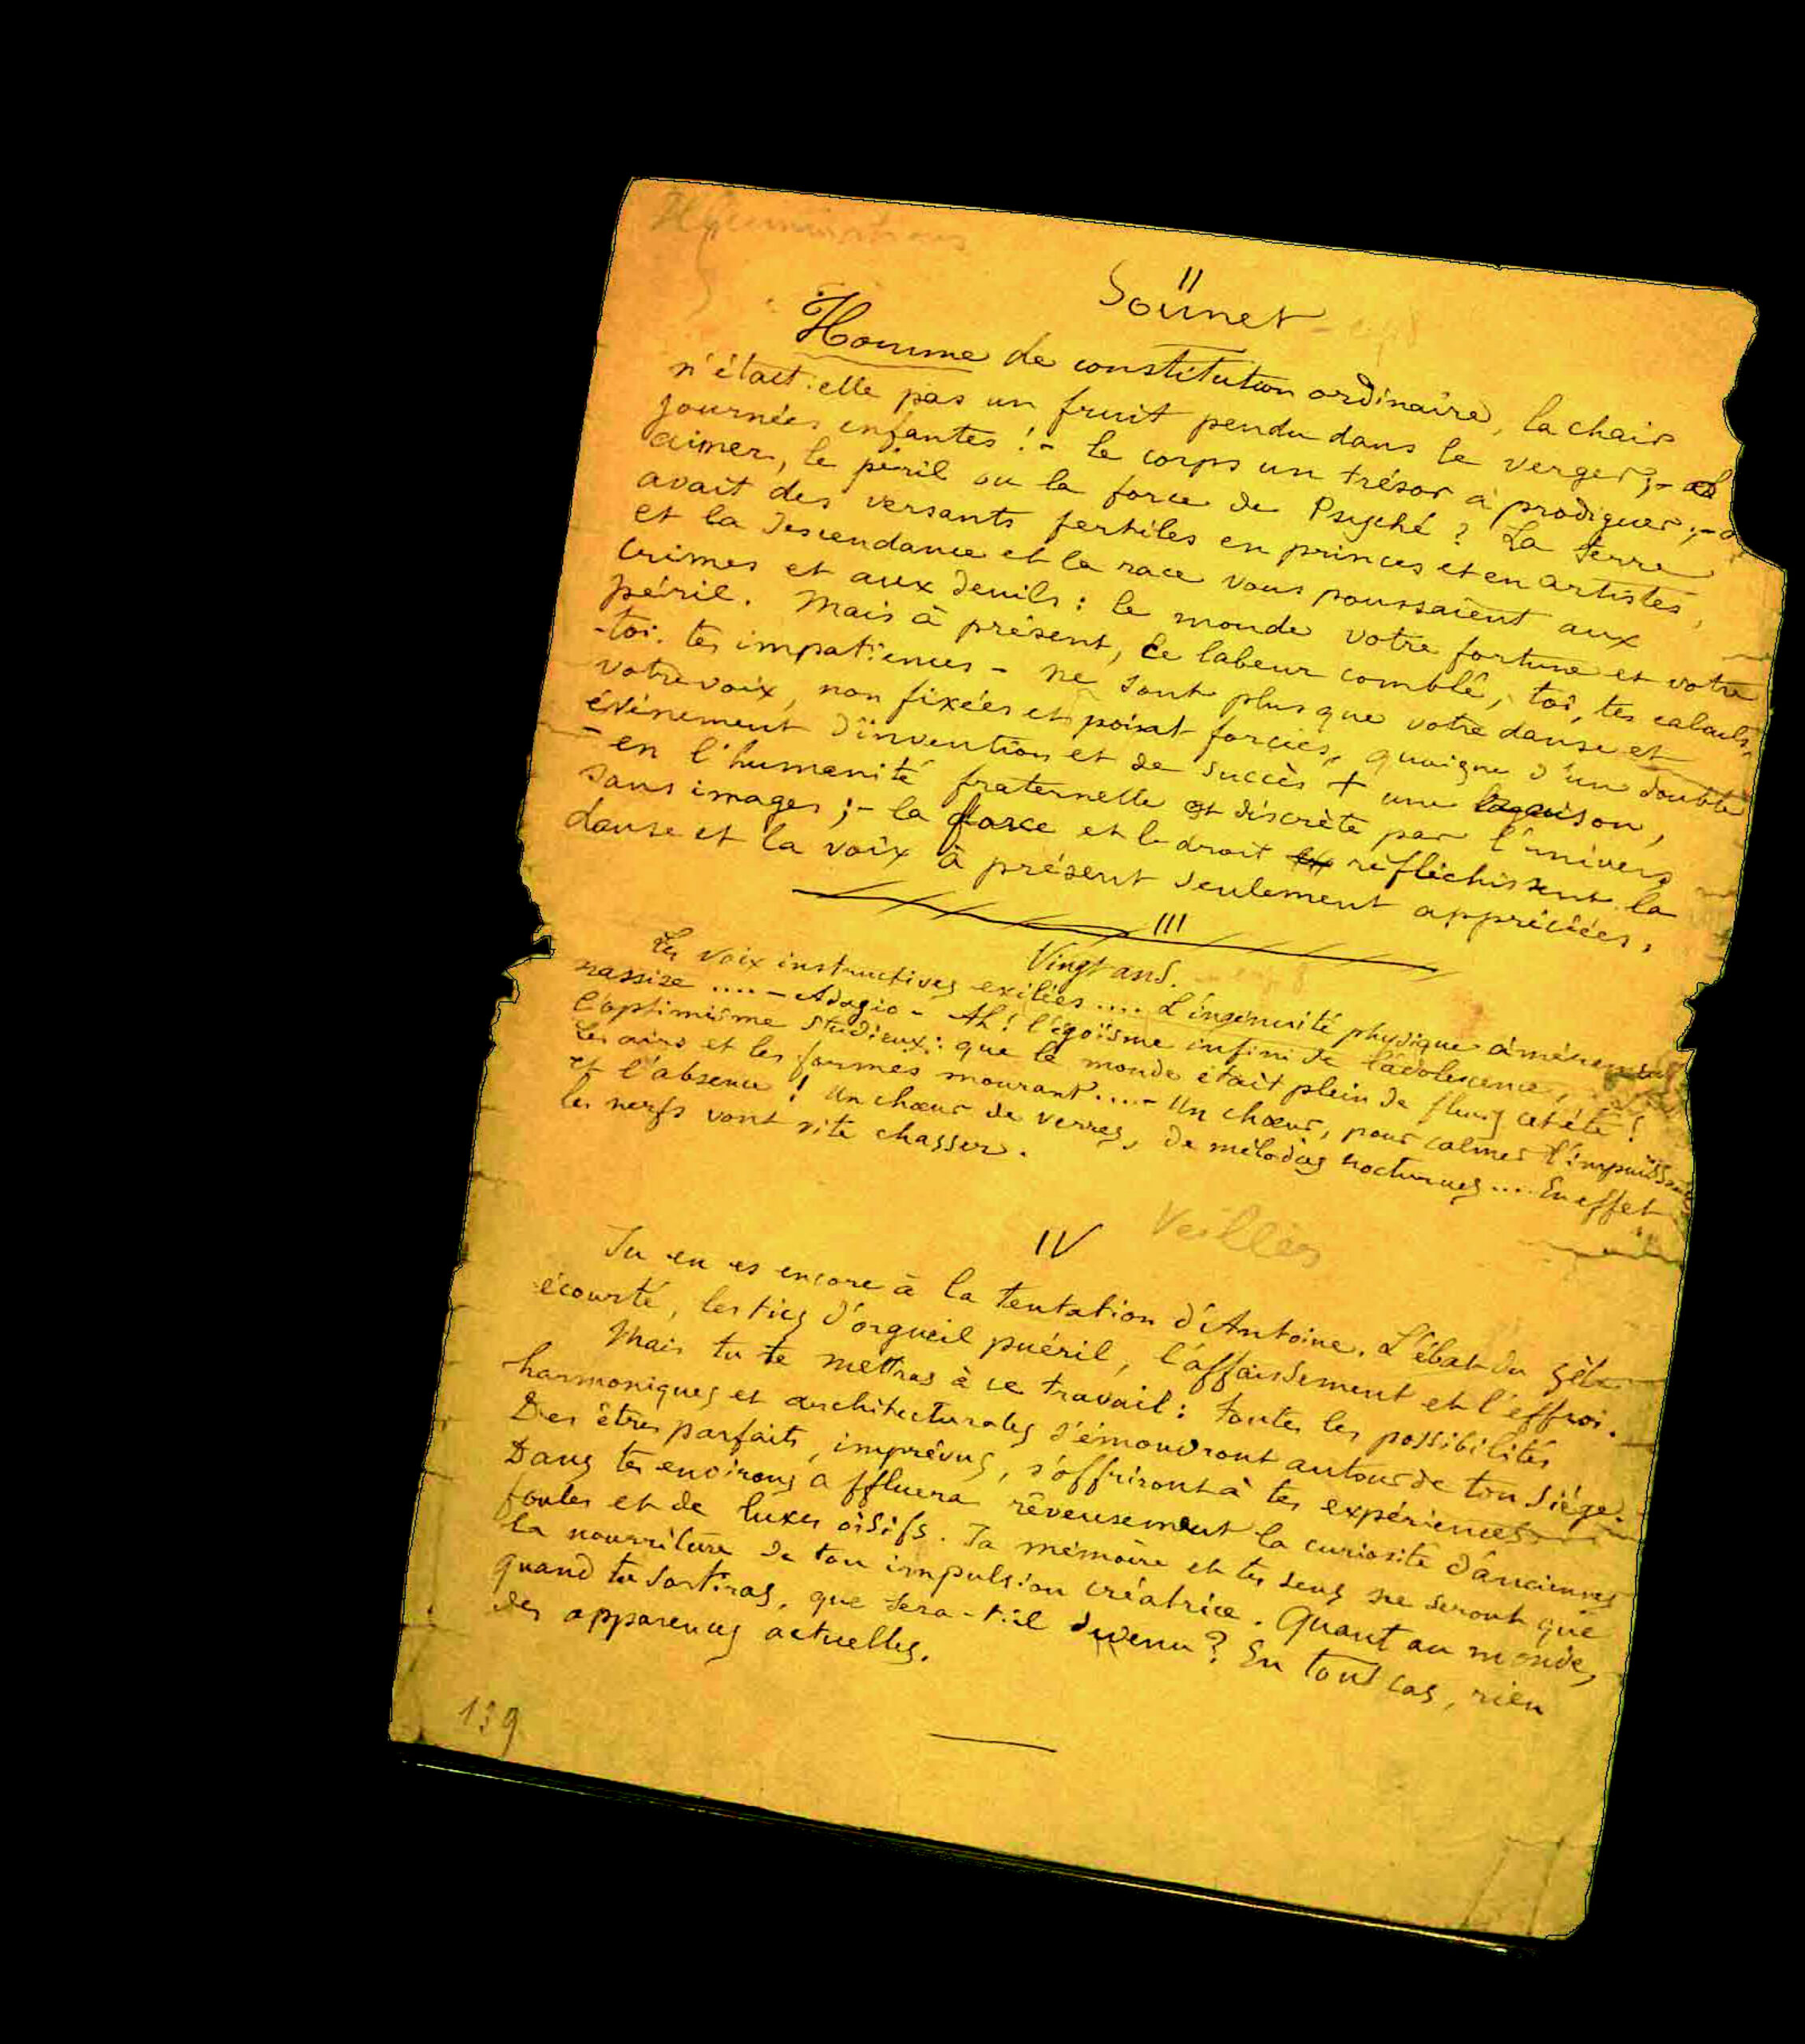 Illuminations
II
Sonnet
Homme de constitution ordinaire, la chair
n'était-elle pas un fruit pendu dans le verger ; - ô
journées enfantes ! - le corps un trésor à prodiguer ; - ô
aimer, le péril ou la force de Psyché ? La terre
avait des versants fertiles en princes et en artistes,
et la descendance et la race vous poussaient aux
crimes et aux deuils : le monde votre fortune et votre
péril. Mais à présent, ce labeur comblé, toi, tes calculs,
-toi. tes impatiences - ne sont plus que votre danse et
votre voix, non fixées et point forcées, quoique d'un double
événement d'invention et de succès + une raison,
- en l'humanité fraternelle et discrète par l'univers
sans images ; - la force et le droit réfléchissent la
danse et la voix à présent seulement appréciées.
III
Vingt ans.
Les voix instructives exilées .... L'ingénuité physique amèrement
rassise .... - Adagio - Ah ! l'égoïsme infini de l'adolescence,
l'optimisme studieux : que le monde était plein de fleurs cet été !
Les airs et les formes mourant .... - Un chœur, pour calmer l'impuissance
et l'absence ! Un chœur de verres, de mélodies nocturnes .... En effet
les nerfs vont vite chasser.
IV Veillées
Tu en es encore à la tentation d'Antoine. L'ébat du zèle
écourté, les tics d'orgueil puéril, l'affaissement et l'effroi.
Mais tu te mettras à ce travail : toutes les possibilités
harmoniques et architecturales s'émouvront autour de ton siége.
Des êtres parfaits, imprévus, s'offriront à tes expériences.
Dans tes environs affluera rêveusement la curiosité d'anciennes
foules et de luxes oisifs. Ta mémoire et tes sens ne seront que
la nourriture de ton impulsion créatrice. Quant au monde,
quand tu sortiras, que sera-t-il devenu ? En tout cas, rien
des apparences actuelles.
139